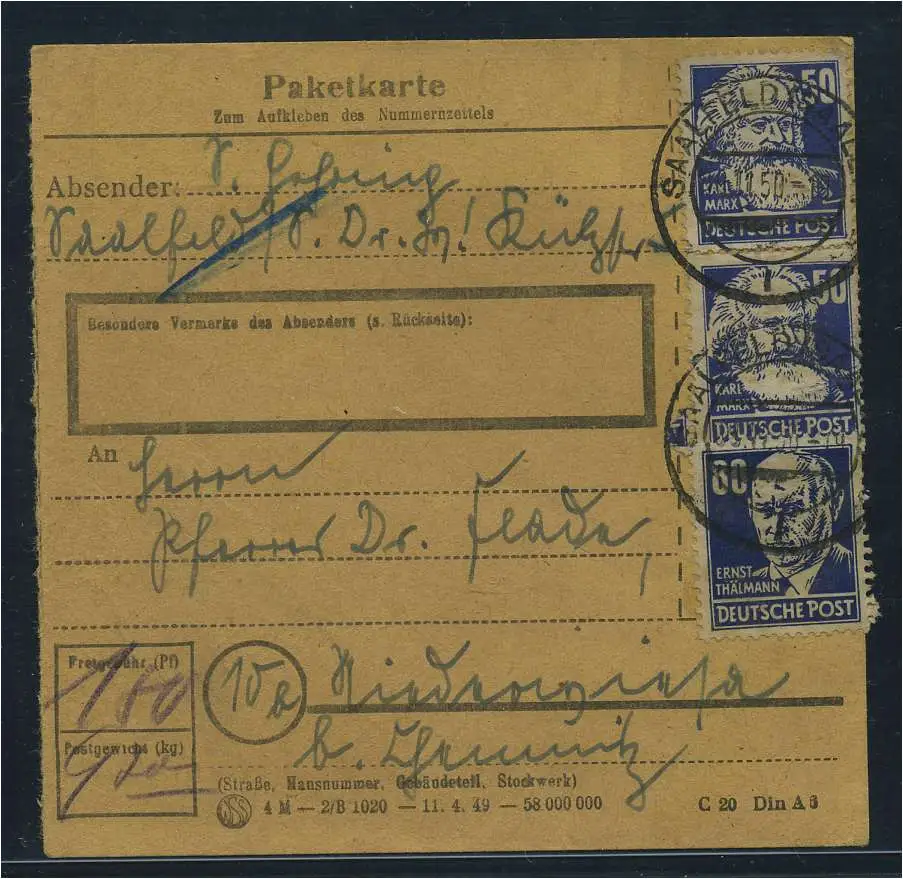 Paketkarte
Zum Aufkleben des Nummernzettels
Absender:
Saalfeld/S. Dr.
Besondere Vermerke des Absenders (s. Rückseite):
An
Herrn
Pfarrer Dr. Flade,
Freigebühr (Pf)
180
Postgewicht (kg)
10b
Niederwiesa
b. Chemnitz
(Straße, Hausnummer, Gebäudeteil, Stockwerk)
4 M — 2/B 1020 — 11. 4. 49 — 58 000 000
C 20 Din A 6
50
KARL
MARX
DEUTSCHE POST
SAALFELD (SAALE)
11.50
1
50
KARL
MARX
DEUTSCHE POST
80
ERNST
THÄLMANN
DEUTSCHE POST